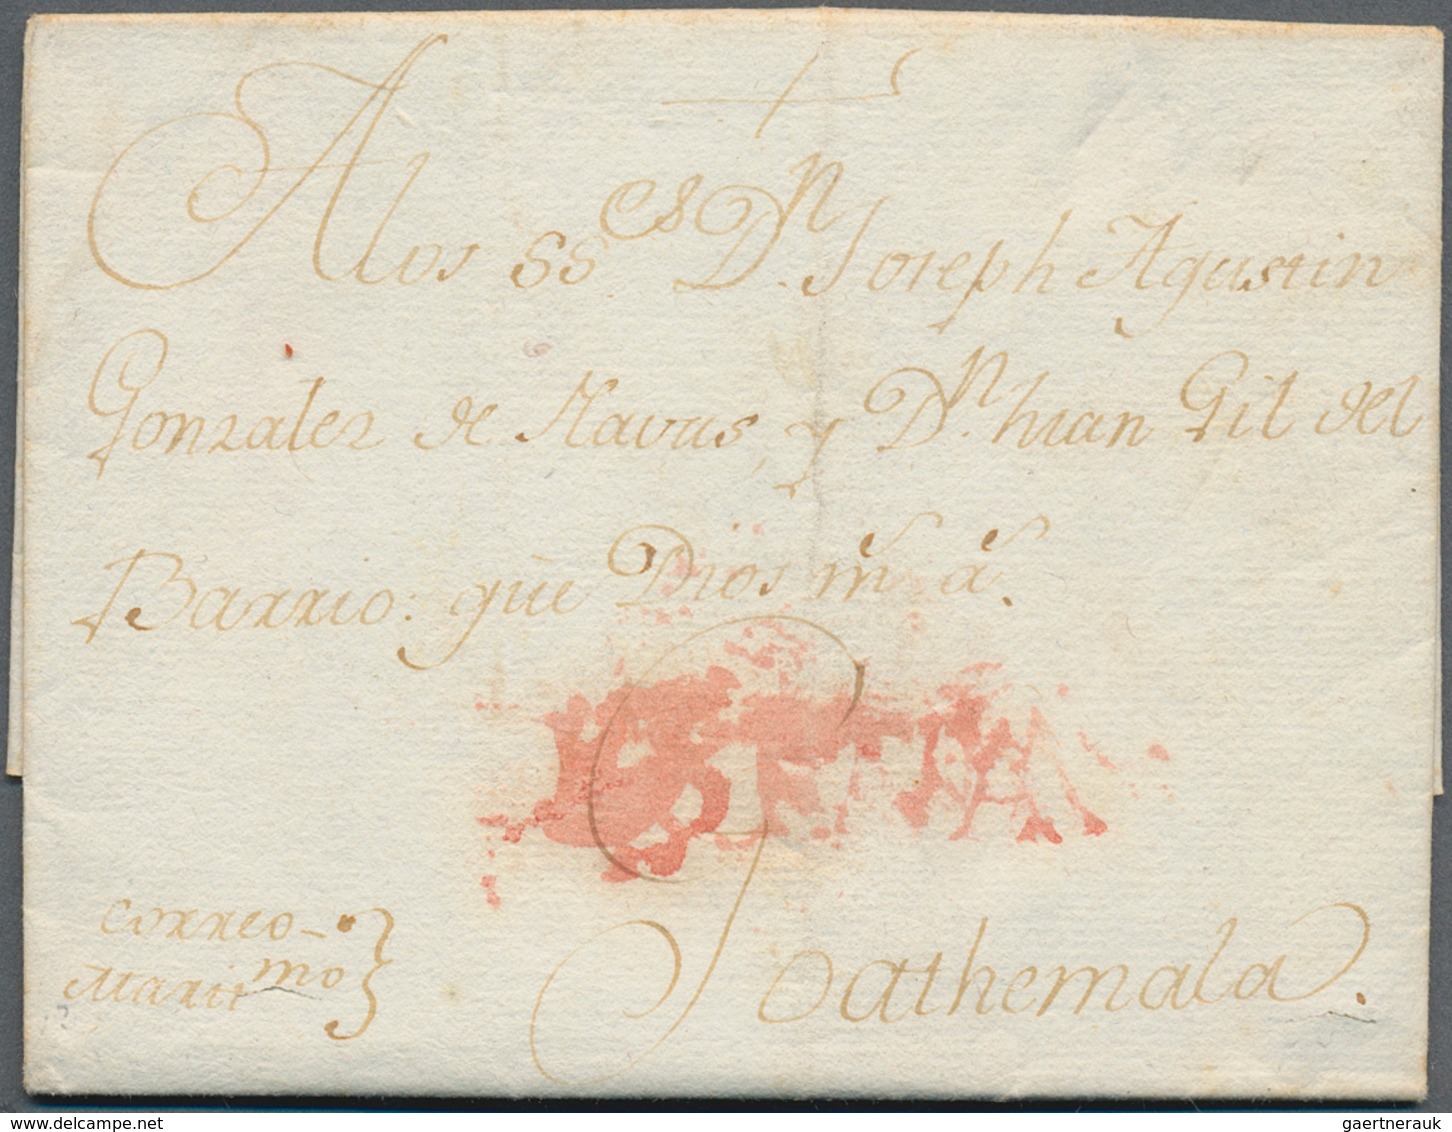 A los SS.es D.n Joseph Agustin
Gonzalez de Navus, y D.n Juan Gil del
Barrio: que Dios m.s a.s
Goathemala.
Correo
Maritmo
delcampe.net
gaertnerauk